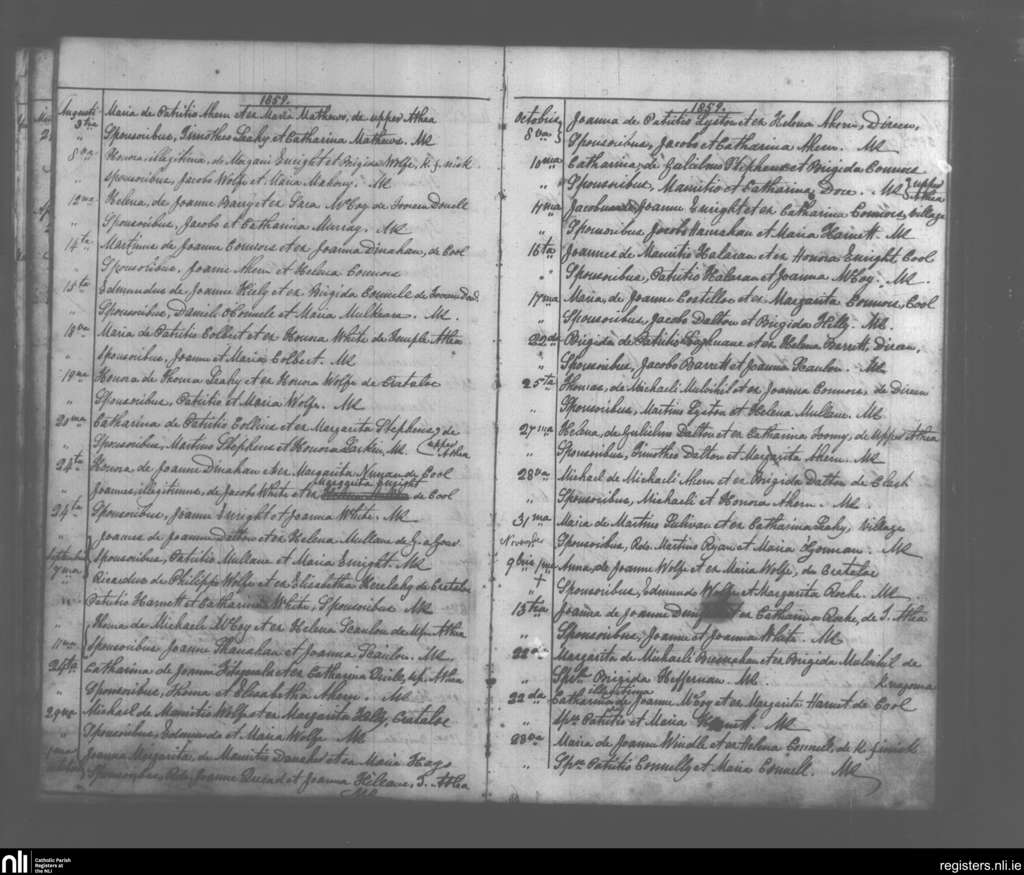 1859.
Augusti Maria de Patritio Ahern et ex Maria Mathews, de upper Athea
3tia Sponsoribus, Timotheo Leahy et Catharina Mathews. MK
8va Honora, illegitima, de Enright et Brigida Wolfe, K.
" Sponsoribus, Jacobo Wolfe et Maria Mahony. MK
12ma Helena, de Joanne Barry et ex Sara McCoy de
" Sponsoribus, Jacobo et Catharina Murray. MK
14ta Martinus de Joanne Connors et ex Joanna Dinahan, de Cool
" Sponsoribus, Joanne Ahern et Helena Connors
15ta Edmundus de Joanne Kiely et ex Brigida Connell de
" Sponsoribus, Daniele O'Connell et Maria MK
18va Maria de Patritio Colbert et ex Honora White de Temple Athea
" Sponsoribus, Joanne et Maria Colbert. MK
19na Honora de Thoma Leahy et ex Honora Wolfe de Crateloe
" Sponsoribus, Patritio et Maria Wolfe. MK
20ma Catharina de Patritio Collins et ex Margarita Stephens, de
" Sponsoribus, Martino Stephens et Honora Larkin, MK (upper Athea
24ta Honora de Joanne Dinahan et ex Margarita Nunan de Cool
Margarita Enright
" Joannes, illegitimus, de Jacobo White et ex de Cool
24ta Sponsoribus, Joanne Enright et Joanna White. MK
" Joannes de Joanne Dalton et ex Helena Mullane de
Sponsoribus, Patritio Mullane et Maria Enright. MK
7ma Ricardus de Philippo Wolfe et ex Elisabetha de Crateloe
" Patritio Harnett et Catharina White, Sponsoribus MK
Thoma de Michaeli McCoy et ex Helena Scanlon de up. Athea
11ma Sponsoribus Joanne Shanahan et Joanna Scanlon. MK
24ta Catharina de Joanne Fitzgerald et ex Catharina up. Athea
" Sponsoribus, Thoma et Elisabetha Ahern. MK
29na Michael de Mauritio Wolfe et ex Margarita Crateloe
" Sponsoribus, Edmundo et Maria Wolfe MK
1ma Joanna Margarita, de Mauritio Danaher et ex Maria Hays
Sponsoribus, Rdo Joanne et Joanna T. Athea
MK
1859.
Octobris Joanna de Patritio Lyston et ex Helena Ahern, Direen,
8va Sponsoribus, Jacobo et Catharina Ahern. MK
10ma Catharina, de Gulielmo Stephens et Brigida Connors
" Sponsoribus, Mauritio et Catharina Dore. MK (upper Athea
11ma Jacobus de Joanne Enright et ex Catharina Connors, village
" Sponsoribus Jacobo Hanrahan et Maria Harnett. MK
16ta Joannes de Mauritio Halaran et ex Honora Enright, Cool
" Sponsoribus, Patritio Halaran et Joanna McCoy. MK
17ma Maria, de Joanne Costelloe et ex Margarita Connors, Cool
" Sponsoribus, Jacobo Dalton et Brigida Kelly. MK
22da Brigida de Patritio et ex Helena Barrett, Direen,
" Sponsoribus, Jacobo Barrett et Joanna Scanlon. MK
25ta Thomas, de Michaeli Mulvihil et ex Joanna Connors, de Direen
" Sponsoribus, Martino Lyston et Helena Mullane. MK
27ma Helena, de Gulielmo Dalton et ex Catharina de Upper Athea
" Sponsoribus, Timotheo Dalton et Margarita Ahern. MK
28va Michael de Michaeli Ahern et ex Brigida Dalton de Clash
" Sponsoribus, Michaeli et Honora Ahern. MK
31ma Maria de Martino Sulivan et ex Catharina Leahy, village
November Sponsoribus, Rdo. Martino Ryan et Maria Gorman. MK
9bris 1ma Anna, de Joanne Wolfe et ex Maria Wolfe, de Crateloe
+ Sponsoribus, Edmundo Wolfe et Margarita Roche. MK
13tia Joanna de Joanne et ex Catharina Roche, de T. Athea
" Sponsoribus, Joanne et Joanna White. MK
22da Margarita de Michaeli Bresnahan et ex Brigida Mulvihil de
" Spbs. Brigida Heffernan. MK Knagorna
illegitima
22da Catharina de Joanne McCoy et ex Margarita Harnet de Cool
" Spr. Patritio et Maria MK
28va Maria de Joanne Windle et ex Helena Connell, de K.
" Spr. Patritio Connelly et Maria Connell. MK
nli Catholic Parish
Registers at
the NLI
registers.nli.ie